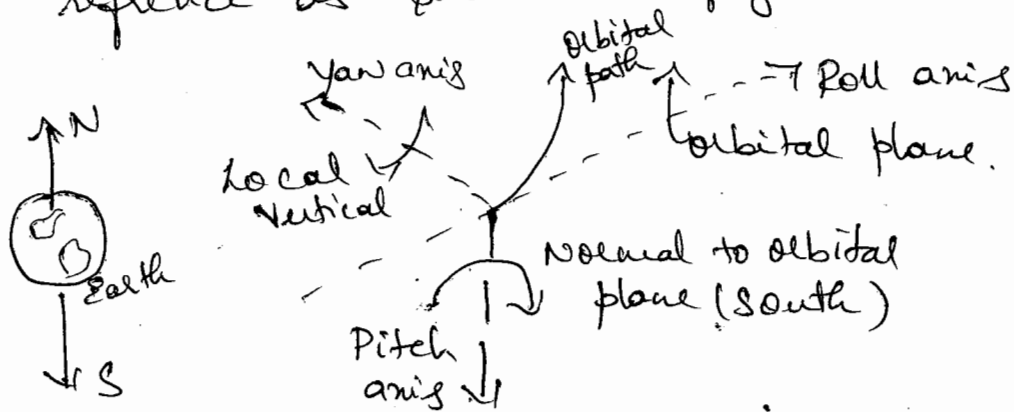 refrence as
Yaw axis
Orbital
path
Roll axis
orbital plane.
N
Local
Vertical
Earth
Normal to orbital
plane (South)
Pitch
axis
S